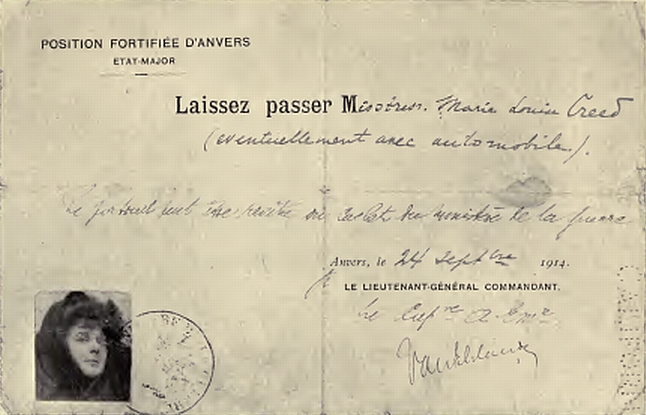 POSITION FORTIFIÉE D'ANVERS
ETAT-MAJOR
Laissez passer Mistress. Marie Louise Creed
(éventuellement avec automobile).
Le portrait doit être revêtu du cachet du ministre de la guerre
Anvers, le 24 septbre 1914.
LE LIEUTENANT-GÉNÉRAL COMMANDANT.